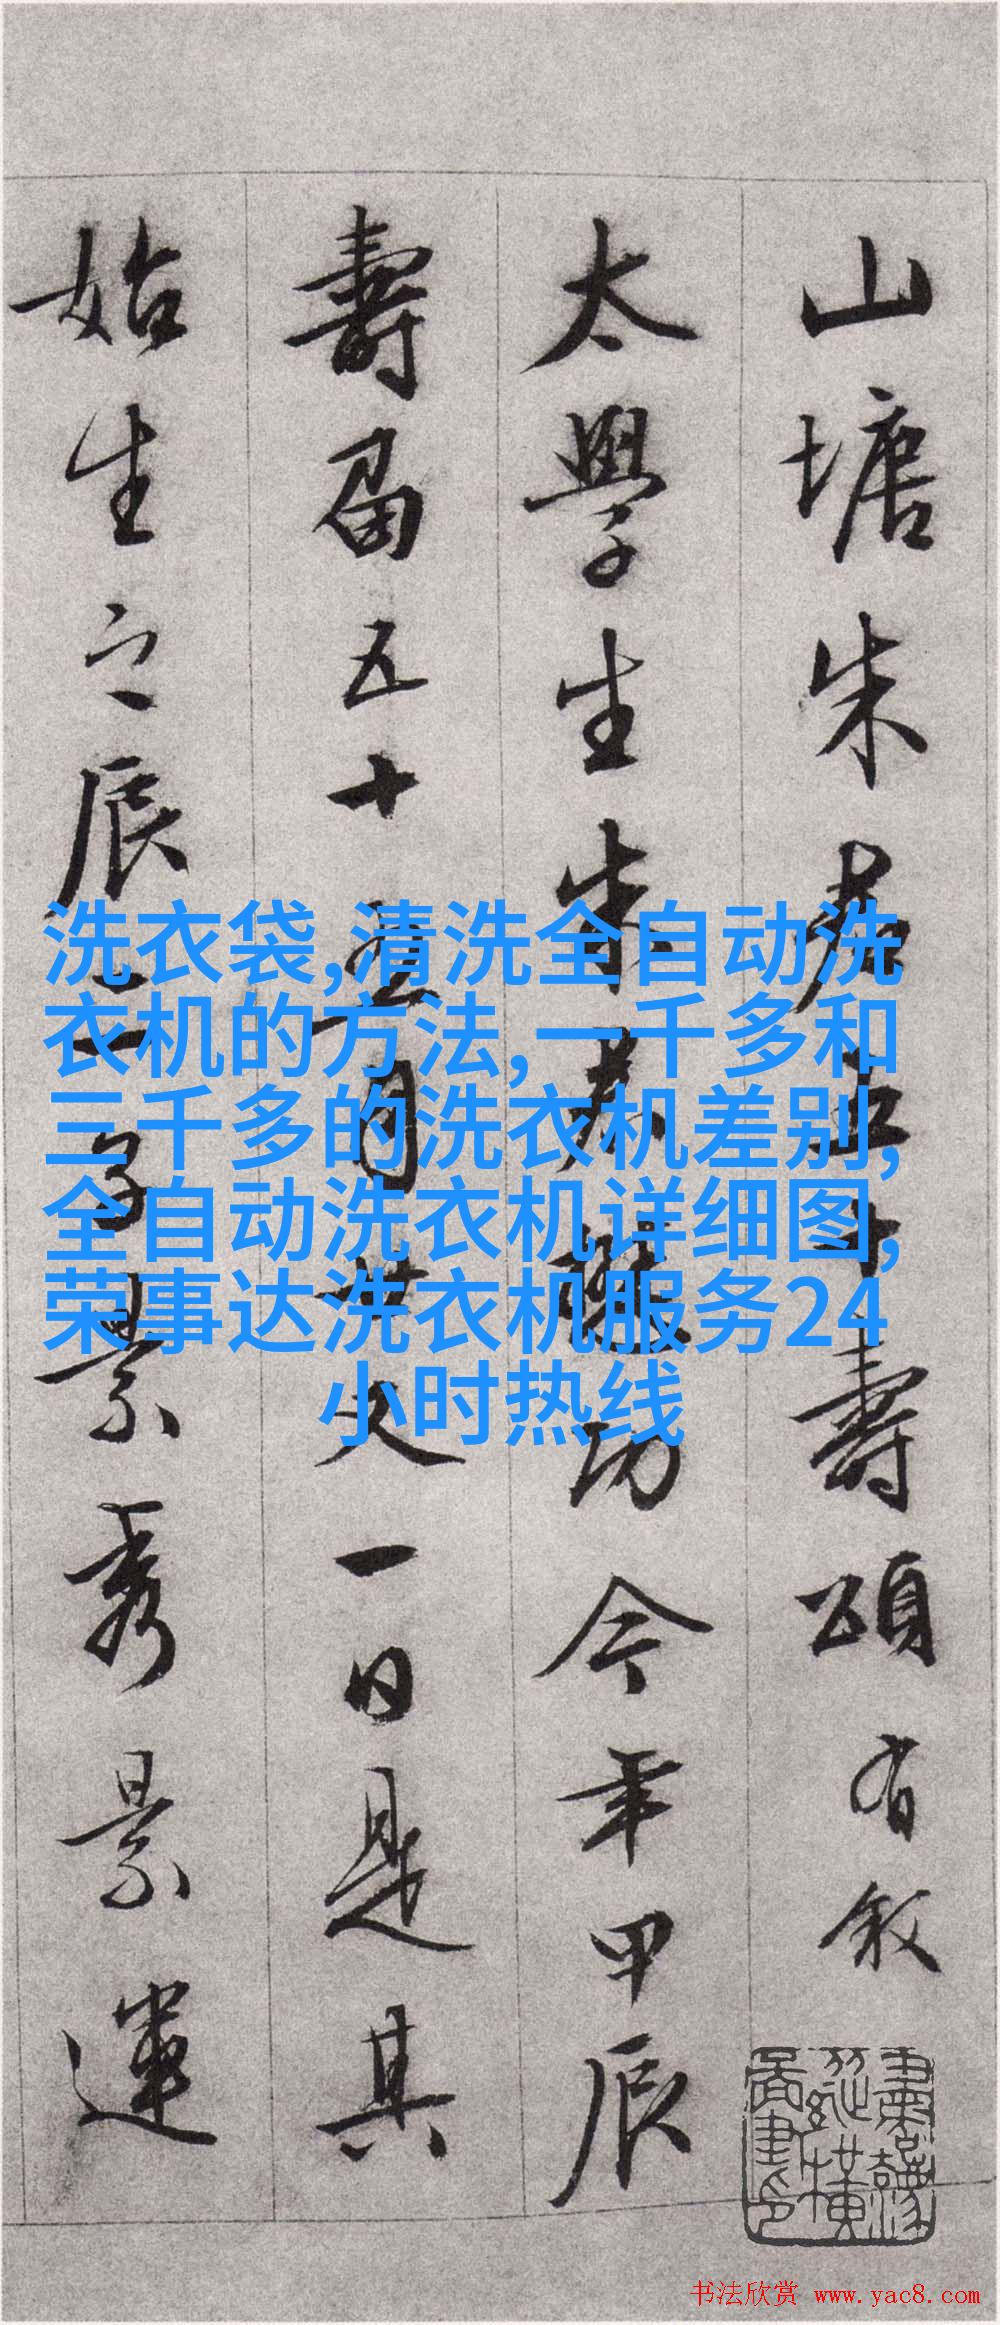 山塘朱君五十壽頌 有敘
太學生朱君 功 今年甲辰
壽屆五十 五月廿又一日是其
始生之辰 二子景秀景運
洗衣袋,清洗全自动洗
衣机的方法,一千多和
三千多的洗衣机差别,
全自动洗衣机详细图,
荣事达洗衣机服务24
小时热线
书法欣赏 www.yac8.com